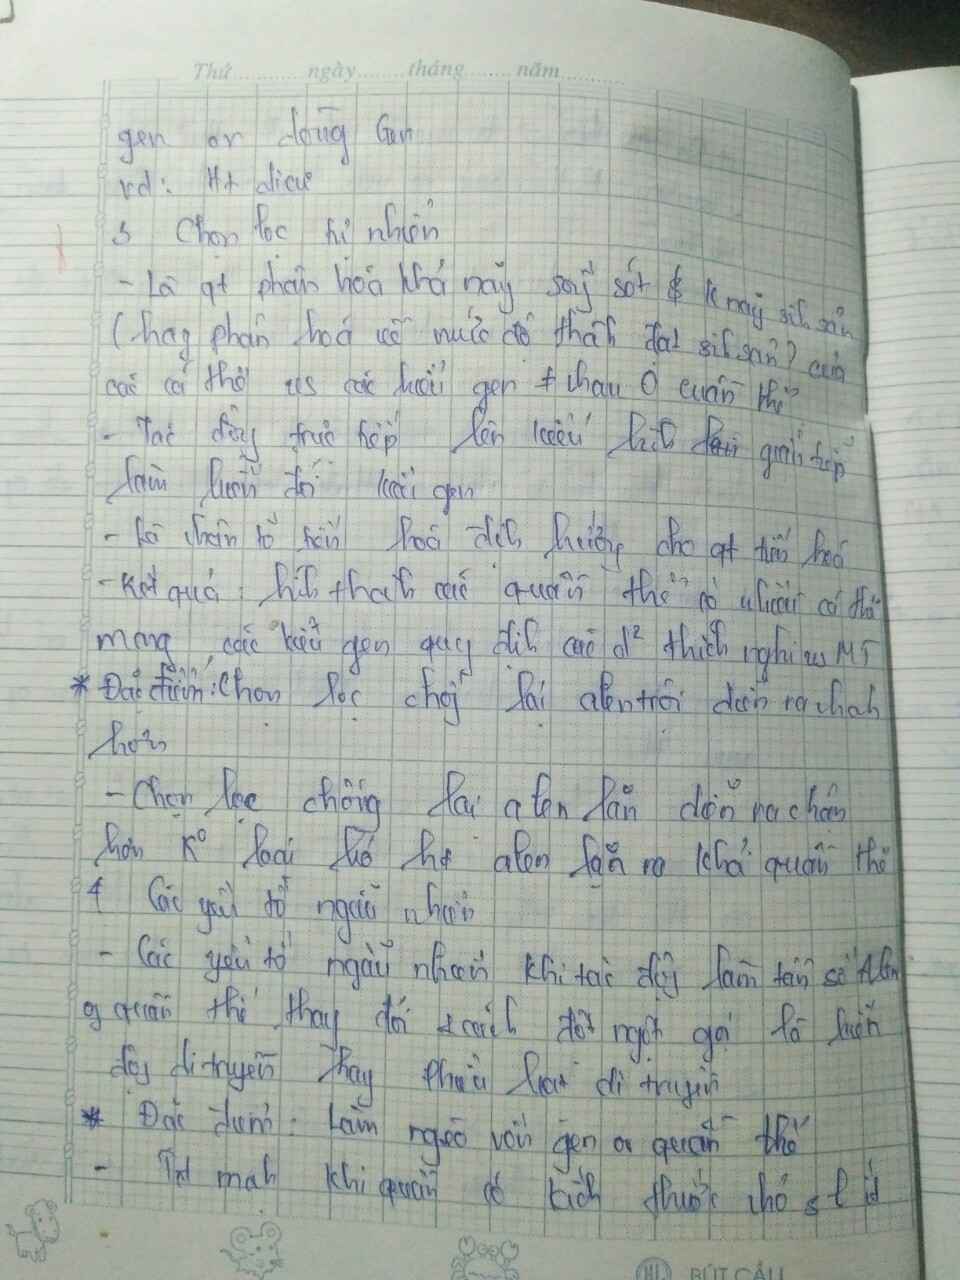 Thứ ngày tháng năm
gen or dòng Gen
vd:
3 Chọn lọc tự nhiên
- Là qt phân hoá khả năng sống sót & k năng sih sản
(hay phân hoá về mức độ thàh đạt sih sản) của
các cá thể các kiểu gen # nhau ở quần thể
- Tác độg trực tiếp lên kiểu hìh gián tiếp
làm biến đổi kiểu gen
- Là nhân tố tiến hoá địh hướng cho qt tiến hoá
- Kết quả: hìh thàh các quần thể có nhiều cá thể
mang các kiểu gen quy địh các đ² thích nghi vs MT
* Đặc điểm: Chọn lọc chốg lại alen trội diễn ra nhah
hơn
- Chọn lọc chống lại alen lặn diễn ra chậm
hơn K° loại bỏ hết alen lặn ra khỏi quần thể
4 Các yếu tố ngẫu nhiên
- Các yếu tố ngẫu nhiên khi tác độg làm tần số Alen
q quần thể thay đổi 1 cách đột ngột gọi là biến
độg di truyền hay phiêu bạt di truyền
* Đặc điểm: Làm nghèo vốn gen ở quần thể
- mạh khi quần có kích thước nhỏ
BÚT CẦU